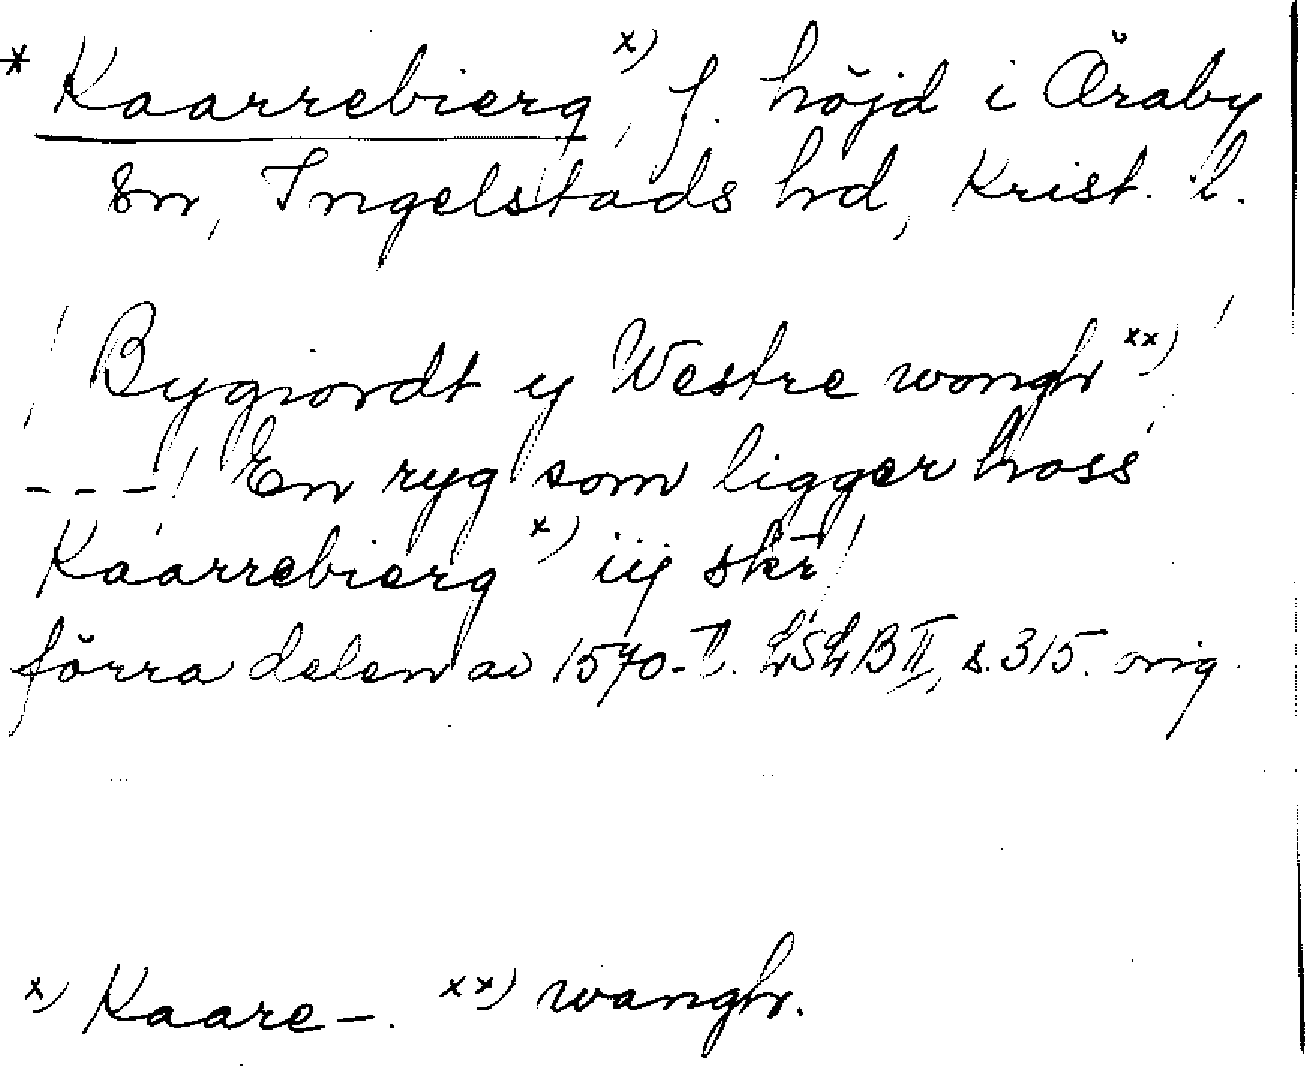 * Kaarrebierg x), f. höjd i Öraby
sn, Ingelstads hrd, Krist. l.
/ Bygiordt y Westre wongh xx) /
- - - / En ryg som ligger hoss
Kaarrebierg x) iij skr̄ /
förra delen av 1570-t. LSLB II, s. 315. orig.
x) Kaare-. xx) wangh.